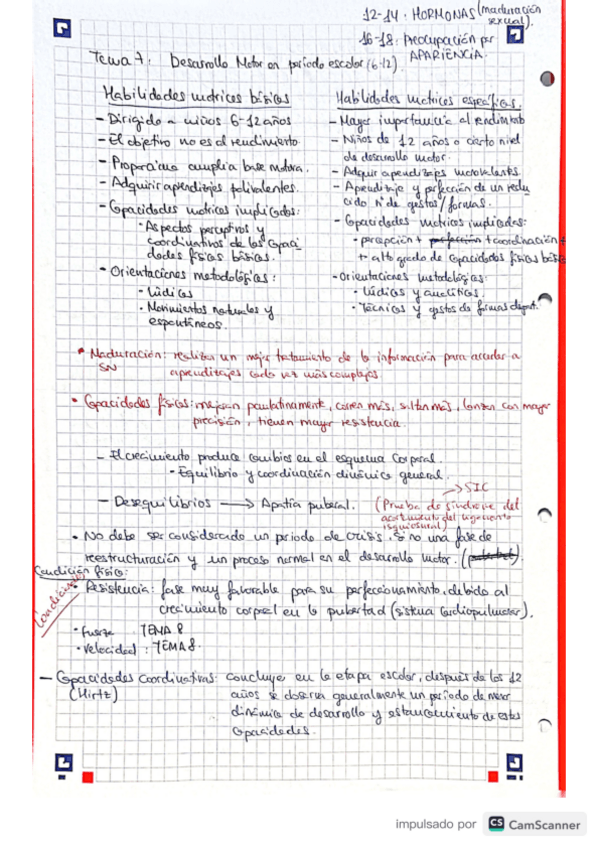 12-14: HORMONAS (maduración sexual).
16-18: Preocupación por APARIENCIA.
Tema 7: Desarrollo Motor en período escolar (6-12).
Habilidades motrices básicas
- Dirigido a niños 6-12 años
- El objetivo no es el rendimiento.
- Proporciona amplia base motora.
- Adquirir aprendizajes polivalentes.
- Capacidades motrices implicadas:
· Aspectos perceptivos y
coordinativos de las capaci
dades físicas básicas.
- Orientaciones metodológicas:
· Lúdicas
· Movimientos naturales y
espontáneos.
Habilidades motrices específicas.
- Mayor importancia al rendimiento
- Niños de 12 años o cierto nivel
de desarrollo motor.
- Adquirir aprendizajes
- Aprendizaje y perfección de un redu
cido nº de gestos/formas.
- Capacidades motrices implicadas:
· percepción + perfección + coordinación +
+ alto grado de capacidades físicas básic
- Orientaciones metodológicas:
· Lúdicas y analíticas.
· Técnicas y gestos de formas deport.
• Maduración: realizar un mejor tratamiento de la información para acceder a
SN aprendizajes cada vez más complejos.
• Capacidades físicas: mejoran paulatinamente, corren más, saltan más, lanzan con mayor
precisión, tienen mayor resistencia.
- El crecimiento produce cambios en el esquema corporal.
· Equilibrio y coordinación dinámica general.
- Desequilibrios → Apatía puberal. (Prueba de síndrome del
→ SIC
acortamiento del
isquiosural)
· No debe ser considerado un periodo de crisis, si no una fase de
reestructuración y un proceso normal en el desarrollo motor.
Condición física:
Condicionales
· Resistencia: fase muy favorable para su perfeccionamiento, debido al
crecimiento corporal en la pubertad (sistema cardiopulmonar).
· Fuerza: TEMA 8
· Velocidad: TEMA 8.
- Capacidades Coordinativas: concluye en la etapa escolar, después de los 12
(Hirtz) años se observa generalmente un período de menor
dinámica de desarrollo y estancamiento de estas
capacidades.
impulsado por CS CamScanner